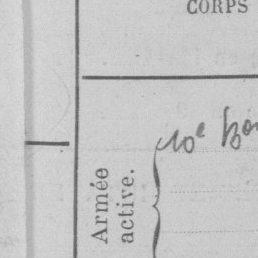 CORPS
Armée
active.
10e